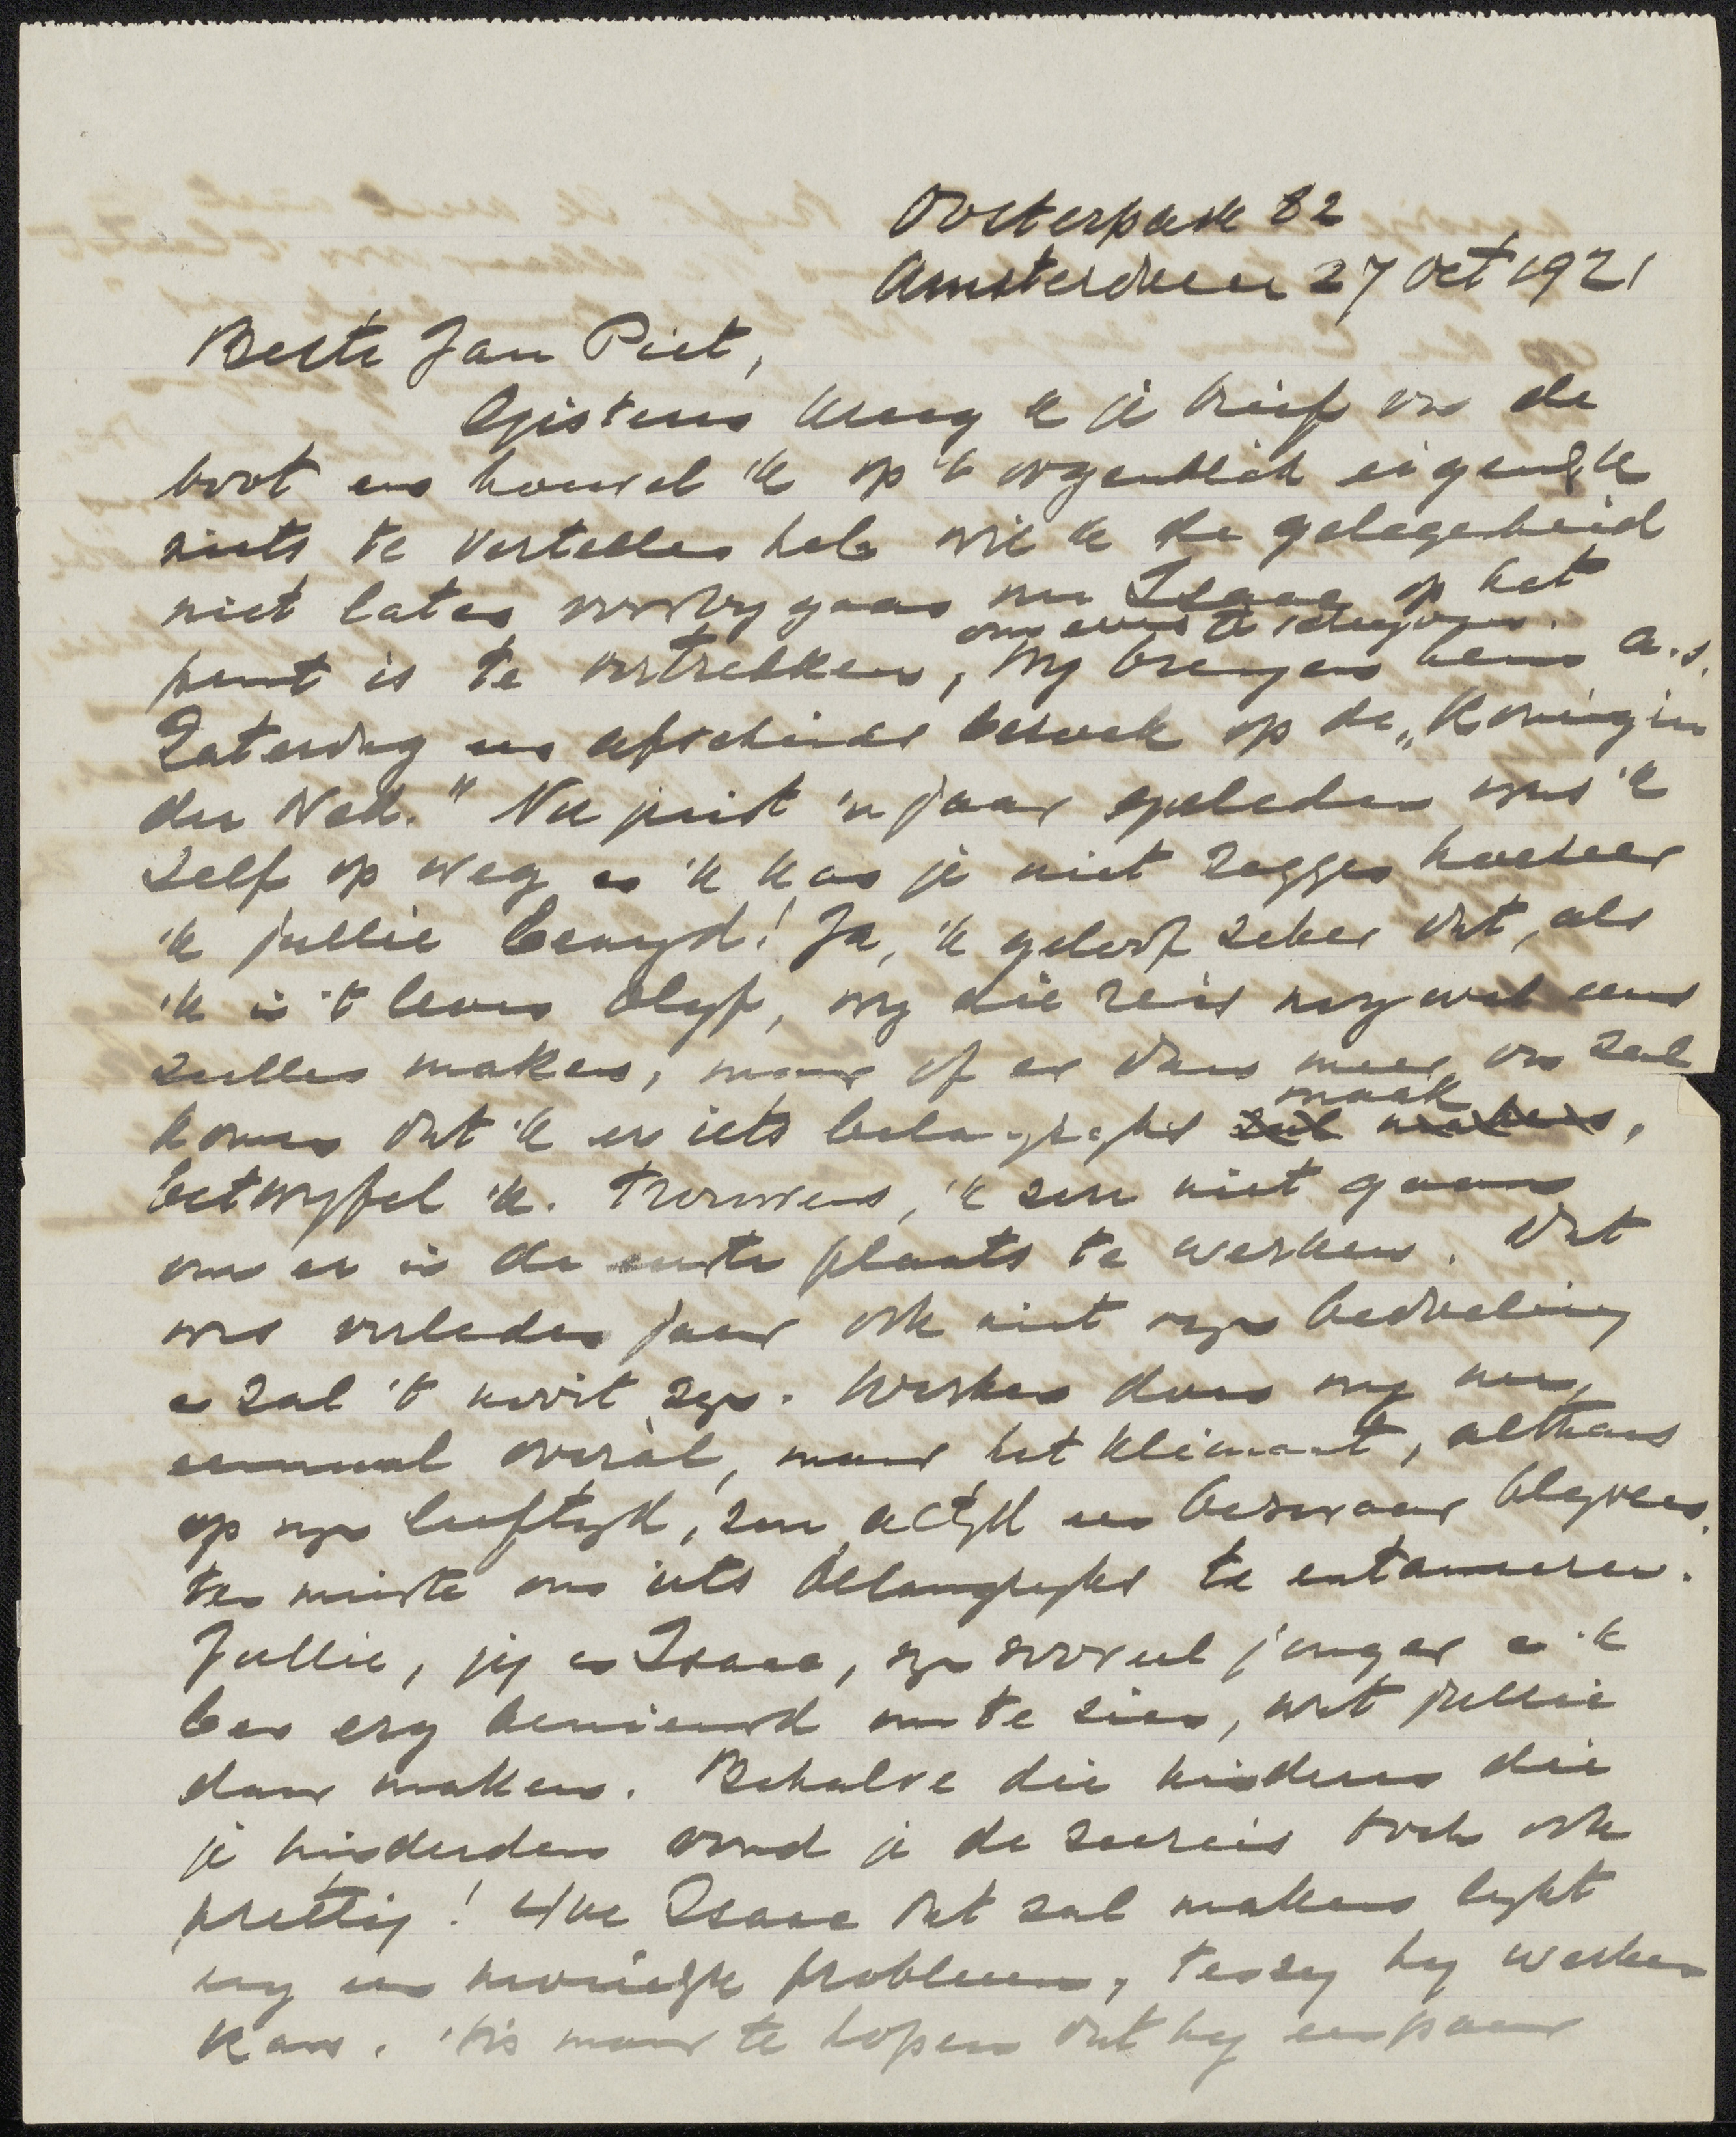 Oosterpark 82
Amsterdam 27 Oct 1921
Beste Jan Piet,
Gisteren kreeg ik je brief van de
boot en hoewel 'k op 't oogenblick eigenlijk
niets te vertellen heb wil ik de gelegenheid
niet laten voorbygaan nu Isaac op het
punt is te vertrekken, om even te schryven. Wy brengen hem a.s.
Zaterdag een afscheids bezoek op de „Koningin
der Ned." Nu juist 'n jaar geleden was 'k
zelf op weg en 'k kan je niet zeggen hoezeer
'k jullie benyd! Ja, 'k geloof zeker dat, als
'k in 't leven blyf, wy die reis nog wel eens
zullen maken, maar of er dan meer van zal
komen dat 'k er iets belangryks zal maken maak,
betwyfel 'k. Trouwens, 'k zou niet gaan
om er in de eerste plaats te werken. Dat
was verleden jaar ook niet myn bedoeling
en zal 't nooit zyn. Werken doen wy nu
eenmaal overàl, maar het klimaat, althans
op myn leeftyd, zou altyd een bezwaar blyven,
ten minste om iets belangryks te entameeren.
Jullie, jy en Isaac, zyn zooveel jonger en 'k
ben erg benieuwd om te zien, wat jullie
daar maken. Behalve die kinderen die
je hinderden vond je de zeereis toch ook
prettig! Hoe Isaac dat zal maken lykt
my een moeielyk probleem, tenzy hy werken
kan. 't is maar te hopen dat hy een paar